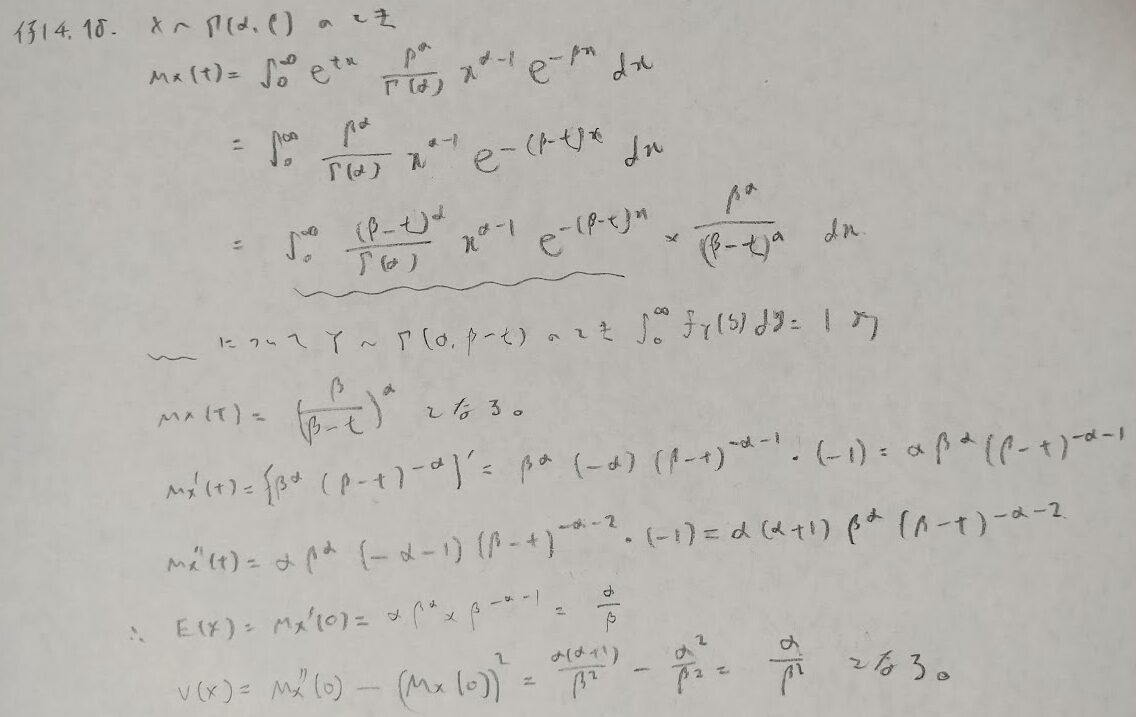 例4.18. X ~ Γ(α, β) のとき
Mx(t) = ∫₀^∞ e^{tx} β^α/Γ(α) x^{α-1} e^{-βx} dx
= ∫₀^∞ β^α/Γ(α) x^{α-1} e^{-(β-t)x} dx
= ∫₀^∞ (β-t)^α/Γ(α) x^{α-1} e^{-(β-t)x} × β^α/(β-t)^α dx.
について Y ~ Γ(α, β-t) のとき ∫₀^∞ f_Y(y) dy = 1 より
Mx(t) = (β/(β-t))^α となる。
Mx'(t) = {β^α (β-t)^{-α}}' = β^α (-α) (β-t)^{-α-1} · (-1) = α β^α (β-t)^{-α-1}
Mx''(t) = α β^α (-α-1) (β-t)^{-α-2} · (-1) = α(α+1) β^α (β-t)^{-α-2}
∴ E(X) = Mx'(0) = α β^α × β^{-α-1} = α/β
V(X) = Mx''(0) - (Mx(0))² = α(α+1)/β² - α²/β² = α/β² となる。